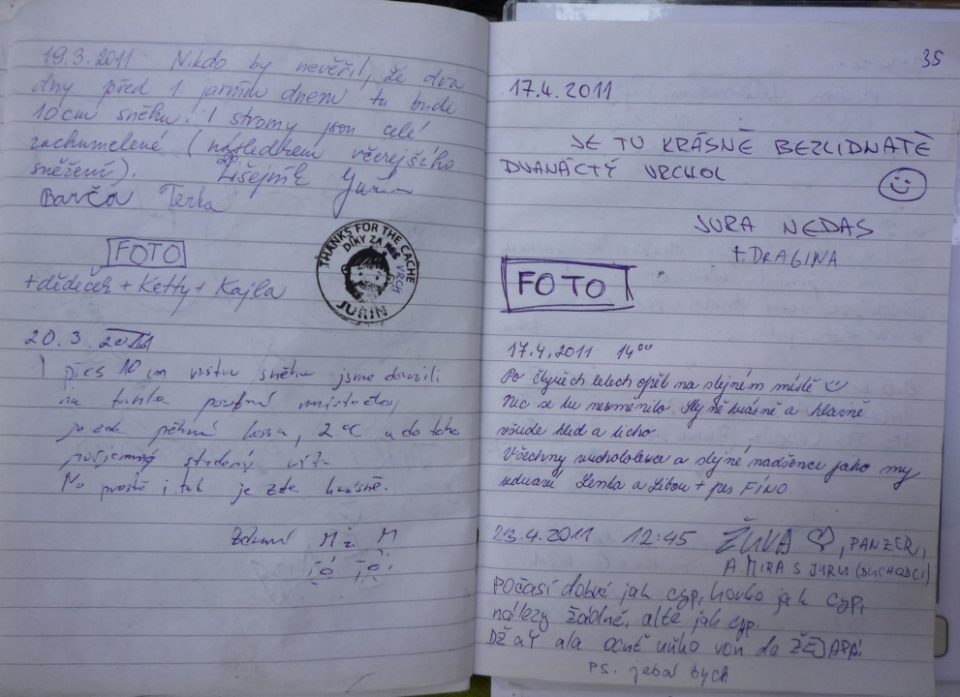 19.3.2011 Nikdo by nevěřil, že dva
dny před 1. jarním dnem tu bude
10 cm sněhu. I stromy jsou celé
zachumelené (následkem včerejšího
sněžení). Lišejník
Barča Terka
FOTO
+ dědeček + Ketty + Kajla
THANKS FOR THE CACHE
DÍKY ZA
VRCH
JURIN
20.3.2011
I přes 10 cm vrstvu sněhu jsme dorazili
na tohle
je zde pěkná kosa, 2°C a do toho
příjemný studený
No prostě i tak je zde krásně.
Zdraví M. z. M
35
17.4.2011
JE TU KRÁSNĚ BEZLIDNATĚ
DVANÁCTÝ VRCHOL
JURA NEDAS
+ DRAGINA
FOTO
17.4.2011 14⁰⁰
Po čtyřech letech opět na stejném místě
Nic se tu nezměnilo. Stejně krásně a hlavně
všude klid a ticho.
Všechny a stejné nadšence jako my
zdraví Lenka a Libor + pes FÍNO
23.4.2011 12:45 ŽUVA ♡, PANZER,
A MIRA S JURU (DUCHODCI)
POČASÍ dobré jak cyp, hovno jak cyp,
nálezy žádné, ale jak cyp.
DŽ AŤ ala von do
PS. jebal bych